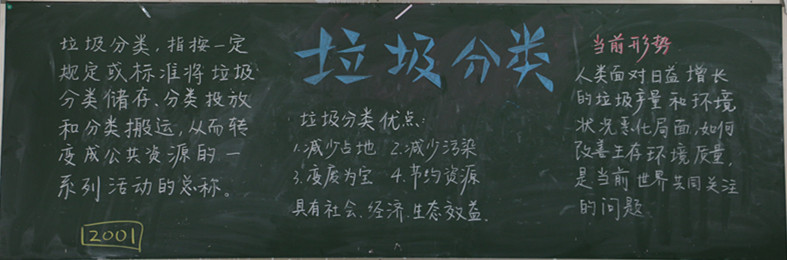 垃圾分类，指按一定
规定或标准将垃圾
分类储存、分类投放
和分类搬运，从而转
变成公共资源的一
系列活动的总称。
2001
垃圾分类
垃圾分类优点：
1.减少占地 2.减少污染
3.变废为宝 4.节约资源
具有社会、经济、生态效益.
当前形势
人类面对日益增长
的垃圾产量和环境
状况恶化局面，如何
改善生存环境质量，
是当前世界共同关注
的问题